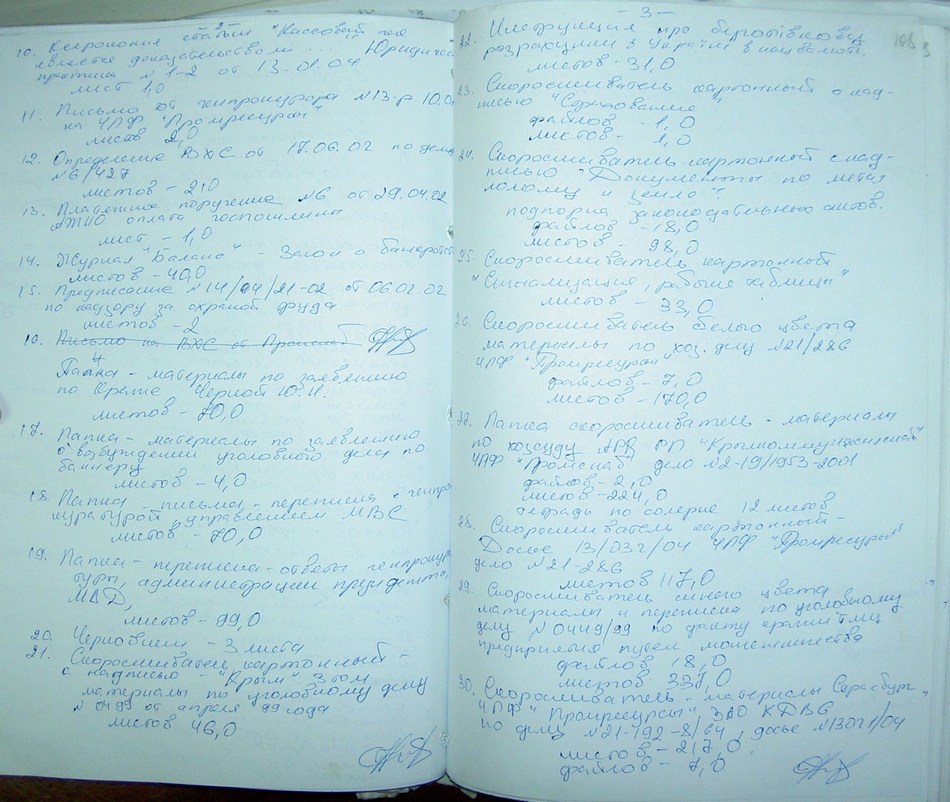 - 2 -
10. Ксерокопия статьи "Кассовый чек
является доказательством ... Юридичес
практика №1-2 от 13.01.04
лист 1,0
11. Письмо от генпрокурора №13-р 10.0
на ЧПФ "Промресурсы"
листов 2,0
12. Определение ВХС от 17.06.02 по делу
№6/427
листов - 2,0
13. Платежное поручение №6 от 29.04.02
оплата госпошлины
лист - 1,0
14. Журнал "Баланс" - Закон о банкротс
листов - 40,0
15. Предписание №14/04/21-02 от 06.02.02
по надзору за охраной труда
листов - 2
16. Письмо на ВХС от
Папка - материалы по заявлению
по краже Черной Ю.И.
листов - 70,0
17. Папка - материалы по заявлению
о возбуждении уголовного дела по
баннеру
листов - 4,0
18. Папка - письма, переписка с генпро
куратурой, управлением МВС
листов - 70,0
19. Папка - переписка - ответы генпрокура
туры, администрации президента,
МВД,
листов - 99,0
20. Черновики - 3 листа
21. Скоросшиватель картонный -
с надписью - "Крым" 3 том
материалы по уголовному делу
№0499 от апреля 99 года
листов 46,0
- 3 -
22. Инструкция про безготівкові
розрахунки в Україні в нацвалюті.
листов - 31,0
23. Скоросшиватель картонный с над-
писью "Страхование"
файлов - 1,0
листов - 1,0
24. Скоросшиватель картонный с над-
писью "Документы по метал
лолому и земле"
подборка законодательных актов.
файлов - 18,0
листов - 98,0
25. Скоросшиватель картонный
"Сигнализация, рабочие таблицы"
листов - 33,0
26. Скоросшиватель белого цвета
материалы по хоз. делу №21/286
ЧПФ "Промресурсы"
файлов - 7,0
листов - 170,0
27. Папка скоросшиватель - материалы
по хозсуду РП "Крымкоммунэкология"
ЧПФ "Промснаб" дело №2-19/1953-2001
файлов - 2,0
листов - 224,0
тетрадь по солерие 12 листов
28. Скоросшиватель картонный -
Досье 13/032/04 ЧПФ "Промресурсы"
дело №21-286
листов 117,0
29. Скоросшиватель синего цвета
материалы и переписка по уголовному
делу №0449/99 по факту кражи тмц
предприятия путем мошенничества
файлов 18,0
листов 331,0
30. Скоросшиватель - материалы
ЧПФ "Промресурсы" ЗАО КДВС
по делу №21-192-8/64, досье №13021/04
листов - 217,0
файлов - 7,0